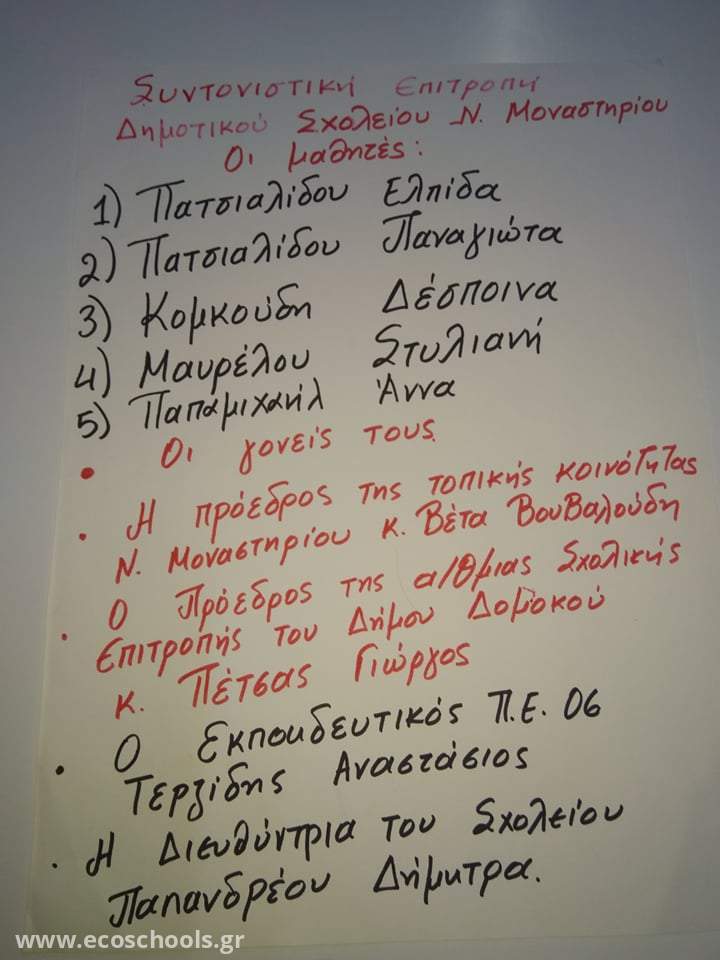 Συντονιστική Επιτροπή
Δημοτικού Σχολείου Ν. Μοναστηρίου
Οι μαθητές:
1) Πατσιαλίδου Ελπίδα
2) Πατσιαλίδου Παναγιώτα
3) Κομκούδη Δέσποινα
4) Μαυρέλου Στυλιανή
5) Παπαμιχαήλ Άννα
• Οι γονείς τους
• Η πρόεδρος της τοπικής κοινότητας
Ν. Μοναστηρίου κ. Βέτα Βουβαλούδη
• Ο Πρόεδρος της α/θμιας Σχολικής
Επιτροπής του Δήμου Δομοκού
κ. Πέτσας Γιώργος
• Ο Εκπαιδευτικός Π.Ε. 06
Τερζίδης Αναστάσιος
• Η Διευθύντρια του Σχολείου
Παπανδρέου Δήμητρα.
www.ecoschools.gr